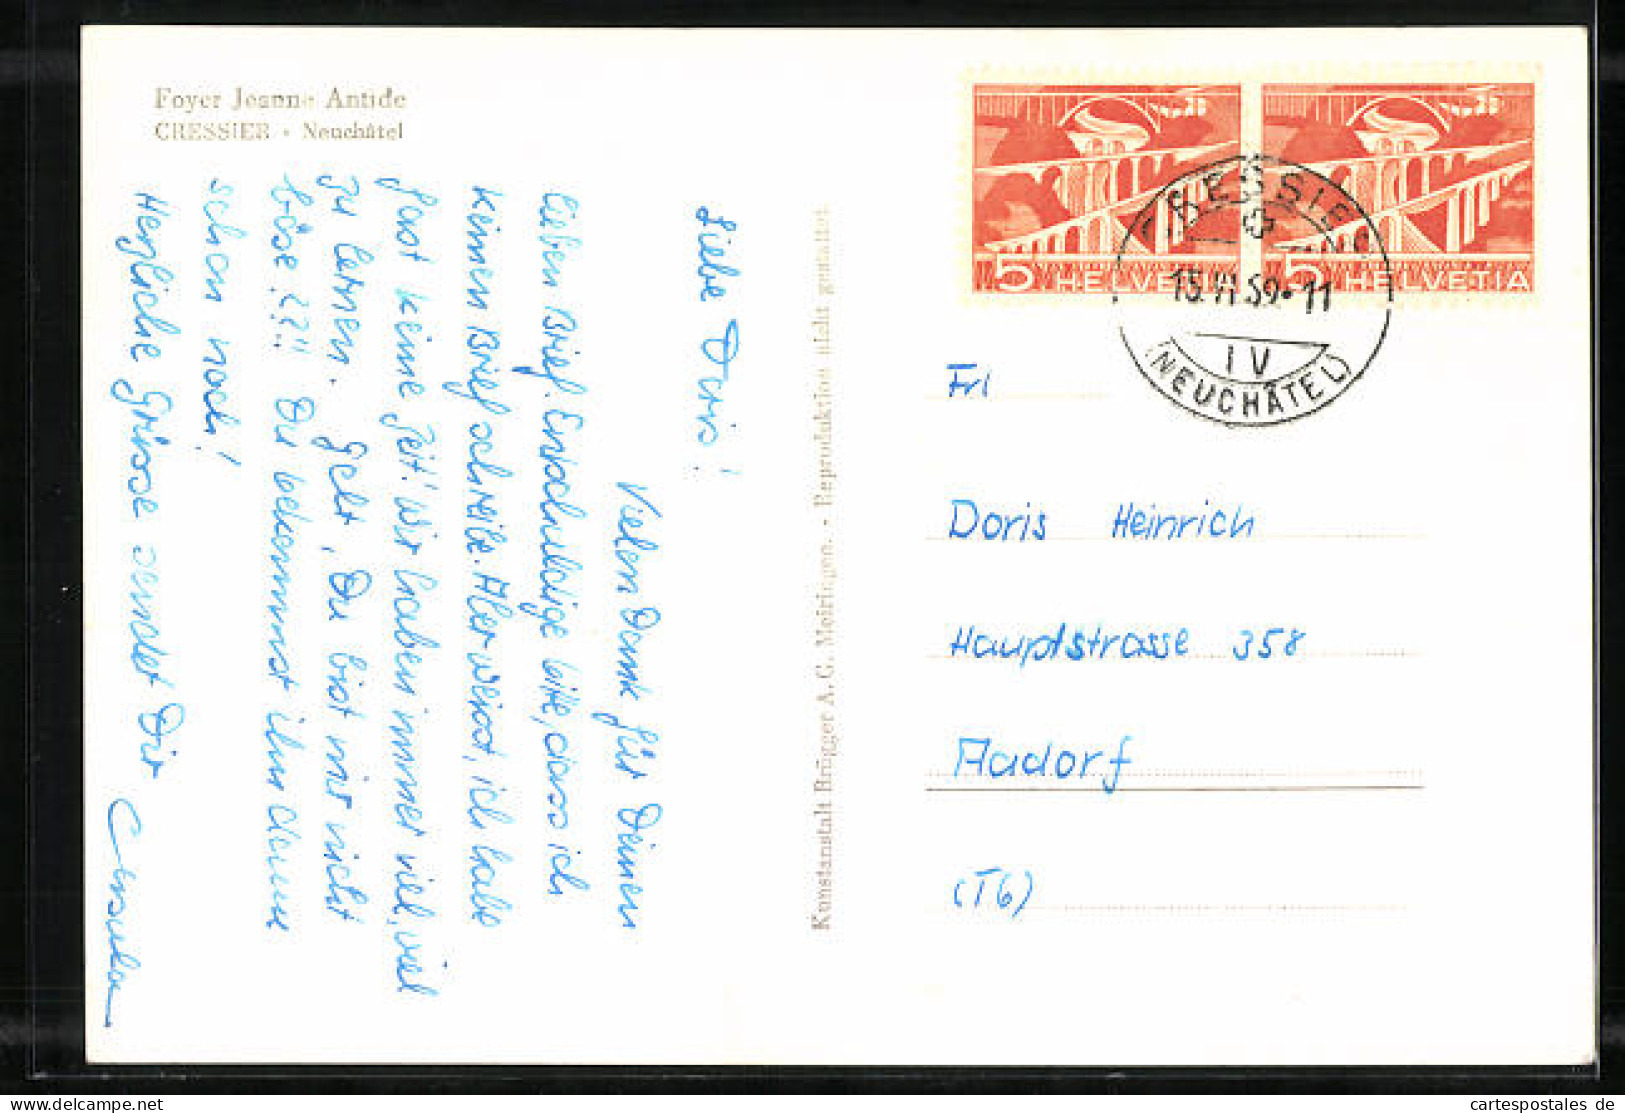 Foyer Jeanne Antide
CRESSIER - Neuchâtel
Liebe Doris!
Vielen Dank für Deinen
lieben Brief. Entschuldige bitte, dass ich
keinen Brief schreibe. Aber weisst, ich habe
fast keine Zeit! Wir haben immer viel, viel
zu lernen. Gelt, Du bist mir nicht
böse???!! Du bekommst ihn dann
schon noch!
Herzliche Grüsse sendet Dir
Ursula
Kunstanstalt Brügger A. G. Meiringen. - Reproduktion nicht gestattet
5 HELVETIA
5 HELVETIA
CRESSIER
15. VI. 59 - 11
IV
(NEUCHÂTEL)
Frl
Doris Heinrich
Hauptstrasse 358
Aadorf
(TG)
cartespostales de